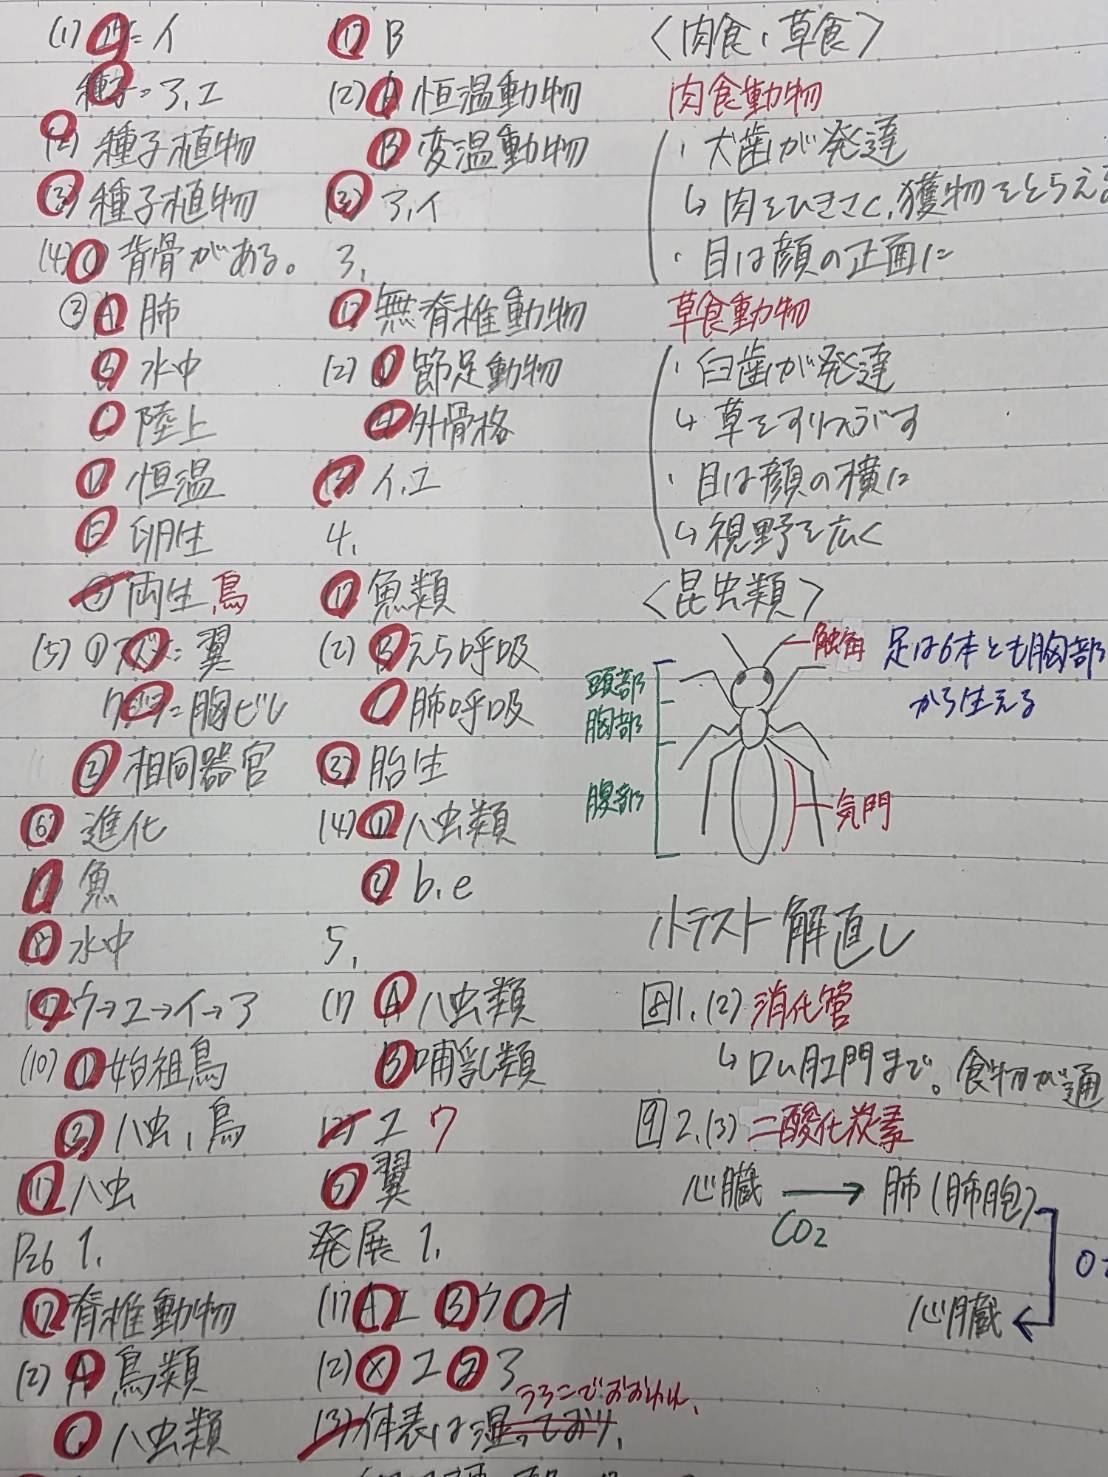 (1) 胞子=イ
種子=ア,エ
(2) 種子植物
(3) 種子植物
(4)① 背骨がある。
② A 肺
B 水中
C 陸上
D 恒温
E 卵生
③ 両生,鳥
(5)① スズメ=翼
クジラ=胸ビレ
② 相同器官
(6) 進化
(7) 魚
(8) 水中
(9) ウ→エ→イ→ア
(10)① 始祖鳥
② ハ虫,鳥
(11) ハ虫
P26 1,
(1) 脊椎動物
(2) A 鳥類
C ハ虫類
(1) B
(2) A 恒温動物
B 変温動物
(3) ア,イ
3,
(1) 無脊椎動物
(2)① 節足動物
② 外骨格
(3) イ,エ
4,
(1) 魚類
(2) B えら呼吸
C 肺呼吸
(3) 胎生
(4)① ハ虫類
② b,e
5,
(1) A ハ虫類
B 哺乳類
(2) エ ウ
(3) 翼
発展 1,
(1) A エ B ウ C オ
(2) X エ Y ア
うろこでおおわれ、
(3) 体表は湿っており、
〈肉食,草食〉
肉食動物
・犬歯が発達
↳ 肉をひきさく,獲物をとらえる
・目は顔の正面に
草食動物
・臼歯が発達
↳ 草をすりつぶす
・目は顔の横に
↳ 視野を広く
〈昆虫類〉
触角
足は6本とも胸部
から生える
頭部
胸部
腹部
気門
小テスト 解直し
図1,(2) 消化管
↳ 口〜肛門まで。食物が通
2,(3) 二酸化炭素
心臓 → 肺(肺胞)
CO2
O2
心臓